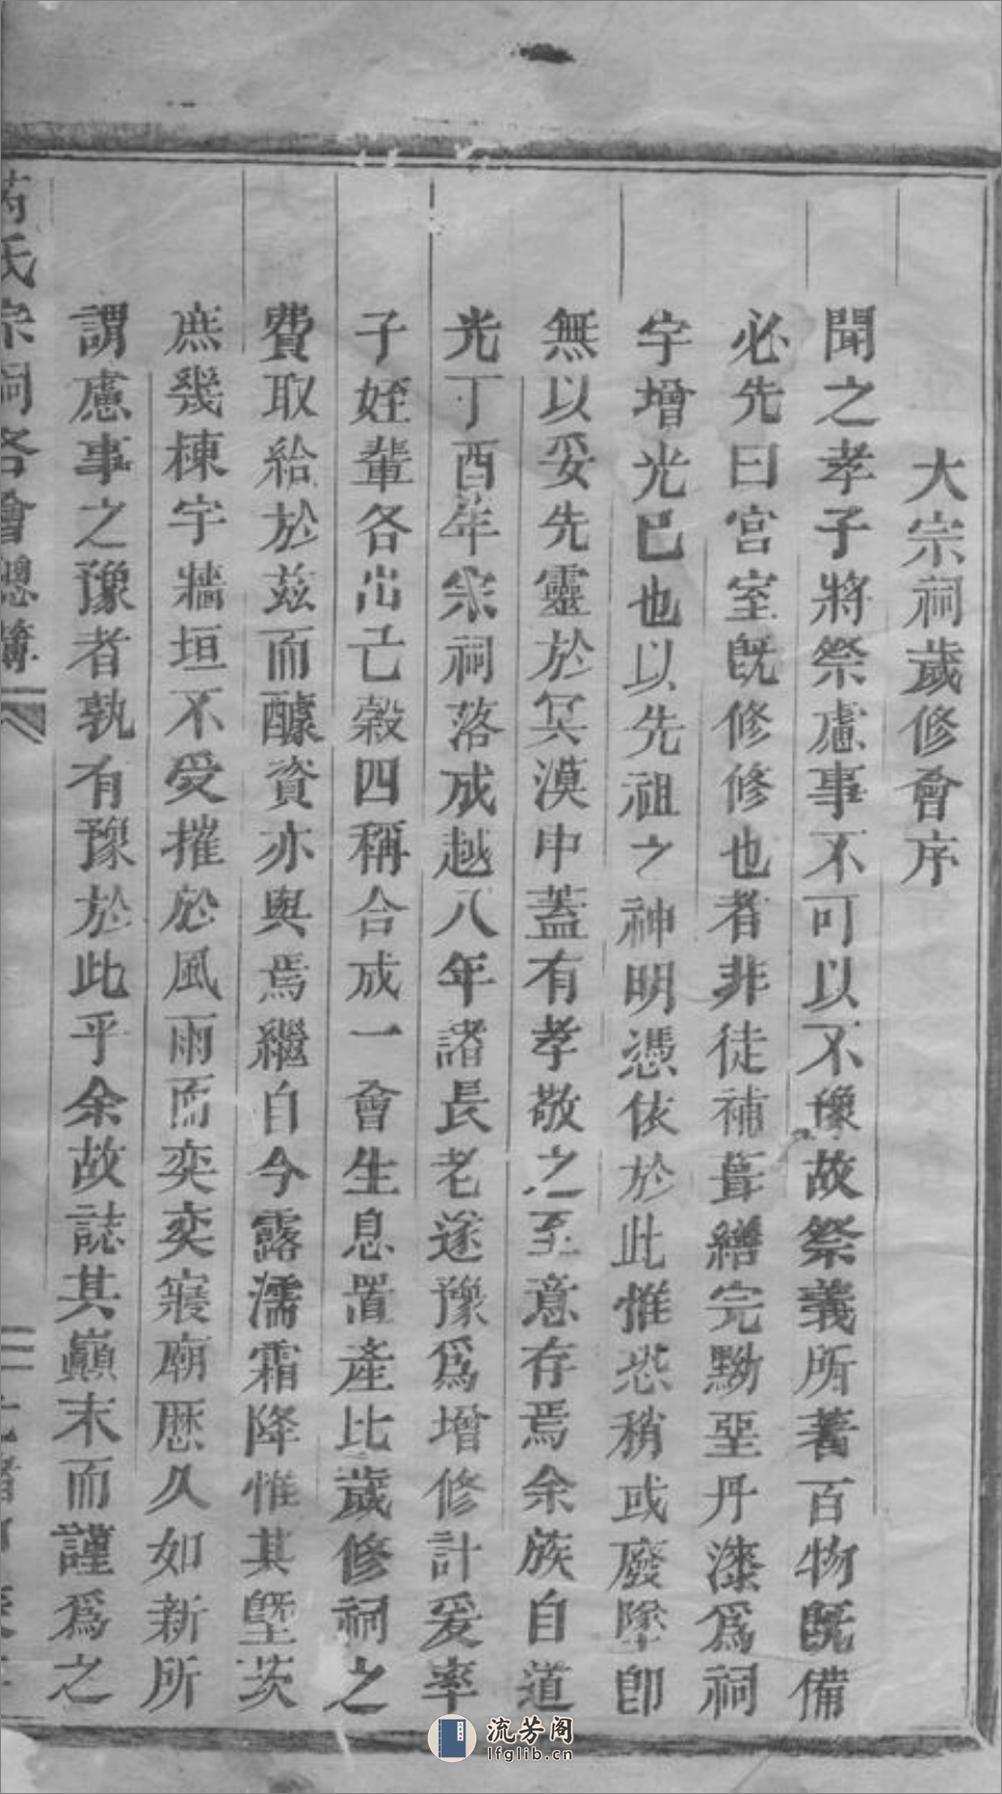 大宗祠歲修會序
聞之孝子將祭慮事不可以不豫故祭義所著百物既備
必先曰宮室既修修也者非徒補葺繕完黝堊丹漆爲祠
宇增光已也以先祖之神明憑依於此惟恐稍或廢墜卽
無以妥先靈於冥漠中蓋有孝敬之至意存焉余族自道
光丁酉年宗祠落成越八年諸長老遂豫爲增修計爰率
子姪輩各出己穀四稱合成一會生息置產比歲修祠之
費取給於兹而醵資亦與焉繼自今露濡霜降惟其塈茨
庶幾棟宇牆垣不受摧於風雨而奕奕寢廟歷久如新所
謂慮事之豫者孰有豫於此乎余故誌其巔末而謹爲之
氏宗祠各會總簿
流芳阁
lfglib.cn